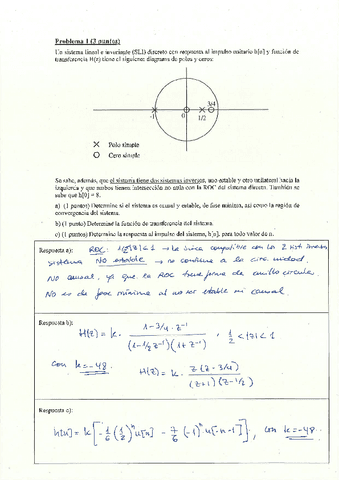 Problema 1 (3 puntos)
Un sistema lineal e invariante (SLI) discreto con respuesta al impulso unitario h[n] y función de
transferencia H(z) tiene el siguiente diagrama de polos y ceros:
-1 0 1/2 3/4
X Polo simple
O Cero simple
Se sabe, además, que el sistema tiene dos sistemas inversos, uno estable y otro unilateral hacia la
izquierda y que ambos tienen intersección no nula con la ROC del sistema directo. También se
sabe que h[0] = 8.
a) (1 punto) Determine si el sistema es causal y estable, de fase mínima, así como la región de
convergencia del sistema.
b) (1 punto) Determine la función de transferencia del sistema.
c) (1 punto) Determine la respuesta al impulso del sistema, h[n], para todo valor de n.
Respuesta a): ROC: 1/2<|z|<1 → La única compatible con los 2 sist. inversos
sistema NO estable → no contiene a la circ. unidad.
NO causal, ya que la ROC tiene forma de anillo circular.
No es de fase mínima al no ser estable ni causal.
Respuesta b):
H(z) = k · 1-3/4 · z⁻¹ / (1-1/2z⁻¹)(1+z⁻¹) , 1/2 < |z| < 1
con k=-48. H(z) = k · z(z-3/4) / (z+1)(z-1/2)
Respuesta c):
h[n] = k[-1/6 (1/2)ⁿ u[n] - 7/6 (-1)ⁿ u[-n-1]], con k=-48.